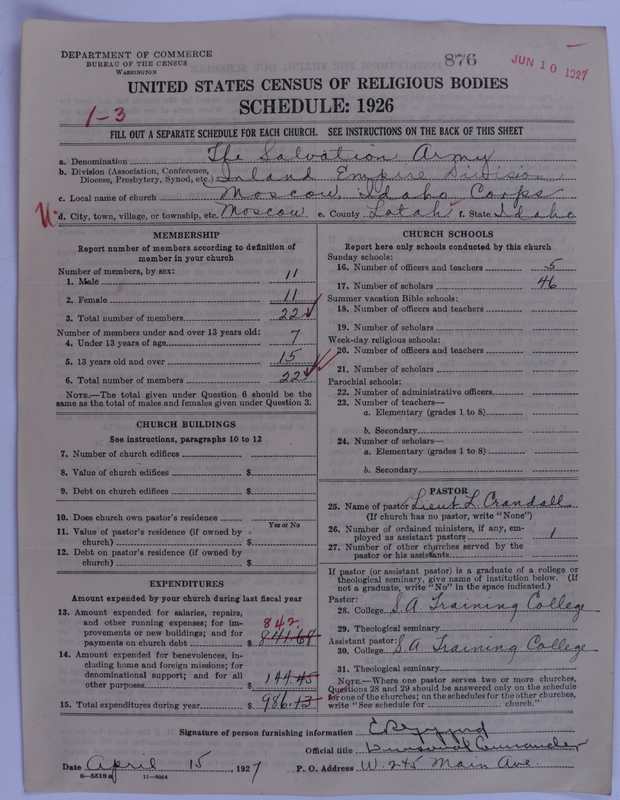 DEPARTMENT OF COMMERCE
BUREAU OF THE CENSUS
WASHINGTON
876
JUN 10 1927
UNITED STATES CENSUS OF RELIGIOUS BODIES
SCHEDULE: 1926
1-3
FILL OUT A SEPARATE SCHEDULE FOR EACH CHURCH. SEE INSTRUCTIONS ON THE BACK OF THIS SHEET
a. Denomination The Salvation Army
b. Division (Association, Conference, Diocese, Presbytery, Synod, etc.) Inland Empire Division
c. Local name of church Moscow, Idaho Corps
d. City, town, village, or township, etc. Moscow e. County Latah f. State Idaho
MEMBERSHIP
Report number of members according to definition of
member in your church
Number of members, by sex:
1. Male 11
2. Female 11
3. Total number of members 22
Number of members under and over 13 years old:
4. Under 13 years of age 7
5. 13 years old and over 15
6. Total number of members 22
NOTE.—The total given under Question 6 should be
same as the total of males and females given under Question 3.
CHURCH BUILDINGS
See instructions, paragraphs 10 to 12
7. Number of church edifices
8. Value of church edifices $
9. Debt on church edifices $
10. Does church own pastor's residence
Yes or No
11. Value of pastor's residence (if owned by
church) $
12. Debt on pastor's residence (if owned by
church) $
EXPENDITURES
Amount expended by your church during last fiscal year
13. Amount expended for salaries, repairs,
and other running expenses; for im-
provements or new buildings; and for
842.
payments on church debt $ 841.68
14. Amount expended for benevolences, in-
cluding home and foreign missions; for
denominational support; and for all
other purposes 144.45
15. Total expenditures during year $ 986.13
CHURCH SCHOOLS
Report here only schools conducted by this church
Sunday schools:
16. Number of officers and teachers 5
17. Number of scholars 46
Summer vacation Bible schools:
18. Number of officers and teachers
19. Number of scholars
Week-day religious schools:
20. Number of officers and teachers
21. Number of scholars
Parochial schools:
22. Number of administrative officers
23. Number of teachers—
a. Elementary (grades 1 to 8)
b. Secondary
24. Number of scholars—
a. Elementary (grades 1 to 8)
b. Secondary
PASTOR
25. Name of pastor Lieut L Crandall
(If church has no pastor, write "None")
26. Number of ordained ministers, if any, em-
ployed as assistant pastors 1
27. Number of other churches served by the
pastor or his assistants
If pastor (or assistant pastor) is a graduate of a college or
theological seminary, give name of institution below. (If
not a graduate, write "No" in the space indicated.)
Pastor:
28. College S.A. Training College
29. Theological seminary
Assistant pastor:
30. College S.A. Training College
31. Theological seminary
NOTE.—Where one pastor serves two or more churches,
Questions 28 and 29 should be answered only on the schedule
for one of the churches; on the schedules for the other churches,
write "See schedule for church."
Signature of person furnishing information
Official title Divisional Commander
Date April 15, 1927 P. O. Address W. 245 Main Ave.
8—5518a 11—9034